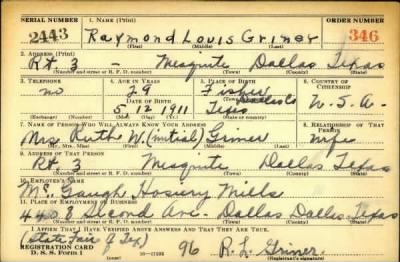 SERIAL NUMBER 1. NAME (Print) ORDER NUMBER
2443 Raymond Louis Griner 346
(First) (Middle) (Last)
2. ADDRESS (Print)
Rt. 3 - Mesquite Dallas Texas
(Number and street or R. F. D. number) (Town) (County) (State)
3. TELEPHONE 4. AGE IN YEARS 5. PLACE OF BIRTH 6. COUNTRY OF CITIZENSHIP
no 29 Fisher Dallas Co
DATE OF BIRTH
5. 12. 1911 Texas U. S. A.
(Exchange) (Number) (Mo.) (Day) (Yr.) (State or country)
7. NAME OF PERSON WHO WILL ALWAYS KNOW YOUR ADDRESS 8. RELATIONSHIP OF THAT PERSON
Mrs Ruth W. (initial) Griner wife
(Mr., Mrs., Miss) (First) (Middle) (Last)
9. ADDRESS OF THAT PERSON
Rt 3 Mesquite Dallas Texas
(Number and street or R. F. D. number) (Town) (County) (State)
10. EMPLOYER'S NAME
Mc Gaugh Hosiery Mills
11. PLACE OF EMPLOYMENT OR BUSINESS
4408 Second Ave - Dallas Dallas Texas
(Number and street or R. F. D. number) (Town) (County) (State)
I AFFIRM THAT I HAVE VERIFIED ABOVE ANSWERS AND THAT THEY ARE TRUE.
(State Fair of Tex)
REGISTRATION CARD 96 R. L. Griner
D. S. S. Form 1